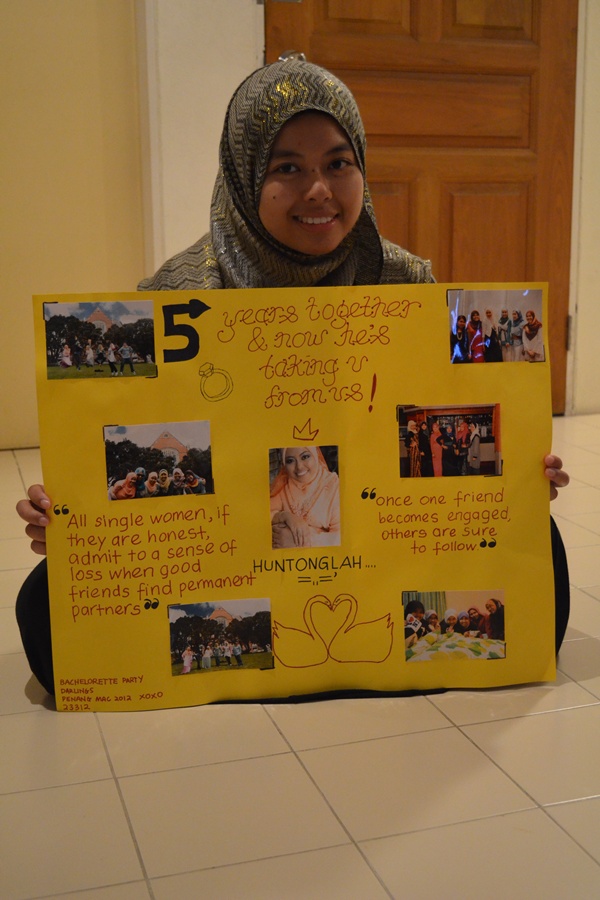 5 years together
& now he's
taking u
from us!
"All single women, if
they are honest,
admit to a sense of
loss when good
friends find permanent
partners"
"once one friend
becomes engaged,
others are sure
to follow"
HUNTONGLAH....
=,,='
BACHELORETTE PARTY
DARLINGS
PENANG MAC 2012 XOXO
23312